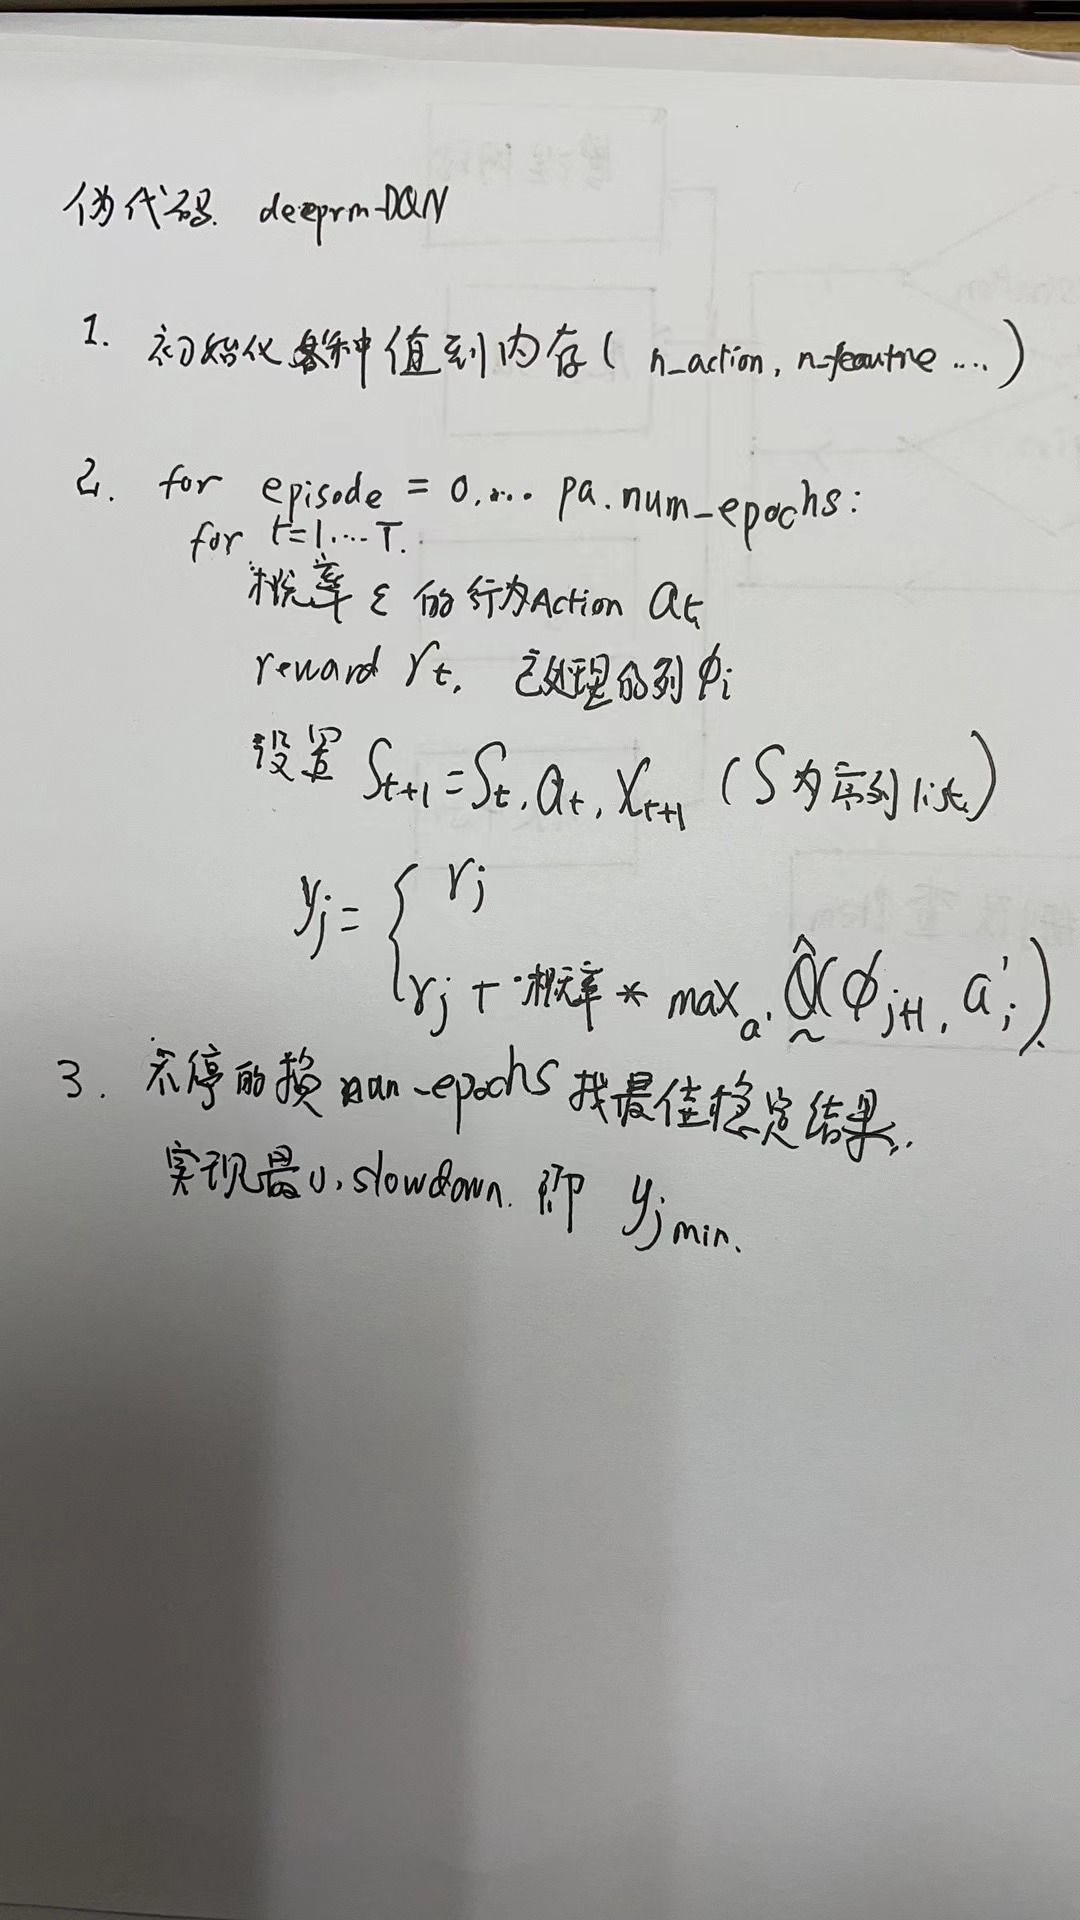 伪代码. deeprm-DQN
1. 初始化各种值到内存( n_action, n_feautre ....)
2. for episode = 0.... pa.num_epochs:
for t=1....T.
概率 ε 的行为Action at
reward rt, 已处理的列 ϕi
设置 St+1=St, at, Xt+1 (S为序列list)
yj= { rj
rj + 概率 * max a' Q̂(ϕj+1, a'j)
3. 不停的换 num-epochs 找最佳稳定结果.
实现最小slowdown. 即 yj min.